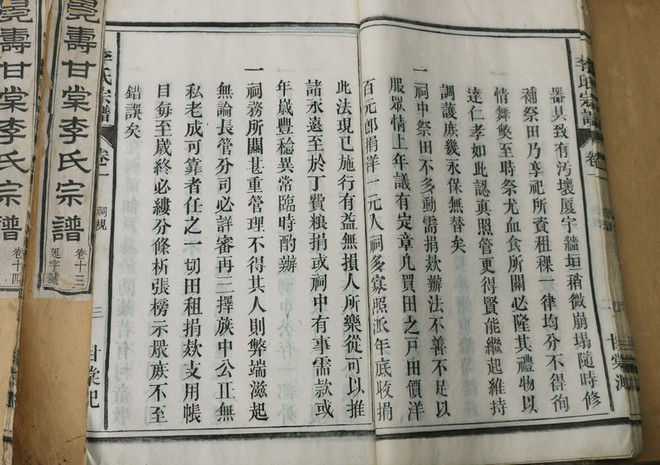 李氏宗譜
器具致有汚壞廈宇牆垣稍微崩塌隨時修
補祭田乃享祀所資租稞一律均分不得徇
情舞獘至時祭尤血食所關必隆其禮物以
達仁孝如此認真照管更得賢能繼起維持
調護庶幾永保無替矣
一祠中祭田不多動需捐欵辦法不善不足以
服眾情上年議有定章凡買田之戸田價洋
百元郎捐洋一元入祠多寡照派年底收捐
此法現已施行有益無損人所樂從可以推
諸永遠至於丁費粮捐或祠中有事需款或
年歲豐稔異常臨時酌辦
一祠務所關甚重管理不得其人則弊端滋起
無論長管分司必詳審再三擇族中公正無
私老成可靠者任之一切田租捐欵支用帳
目每至歲終必縷分條析張榜示眾族不至
錯誤矣
李氏宗譜 卷一 祠規 三 甘棠
壽甘棠李氏宗譜 卷十三 延字號
壽甘棠李氏宗譜 卷十四